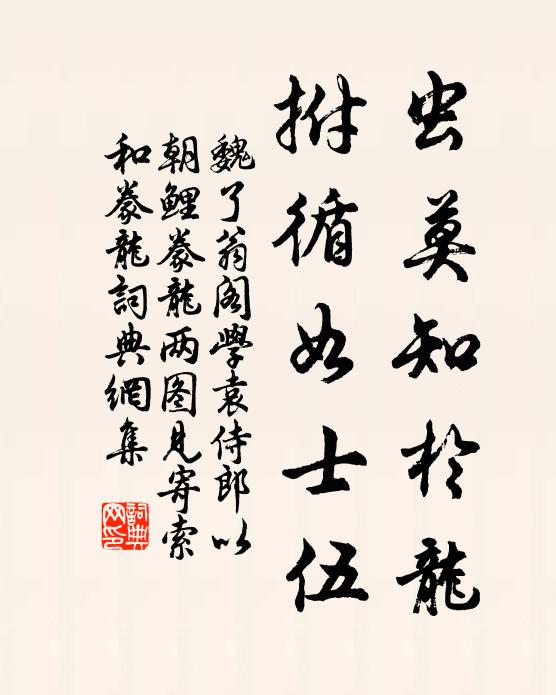 虫莫知於龍
拊循如士伍
魏了翁閣學袁侍郎以
朝鯉豢龍两图見寄索
和豢龍詞典網集
詞典
网印